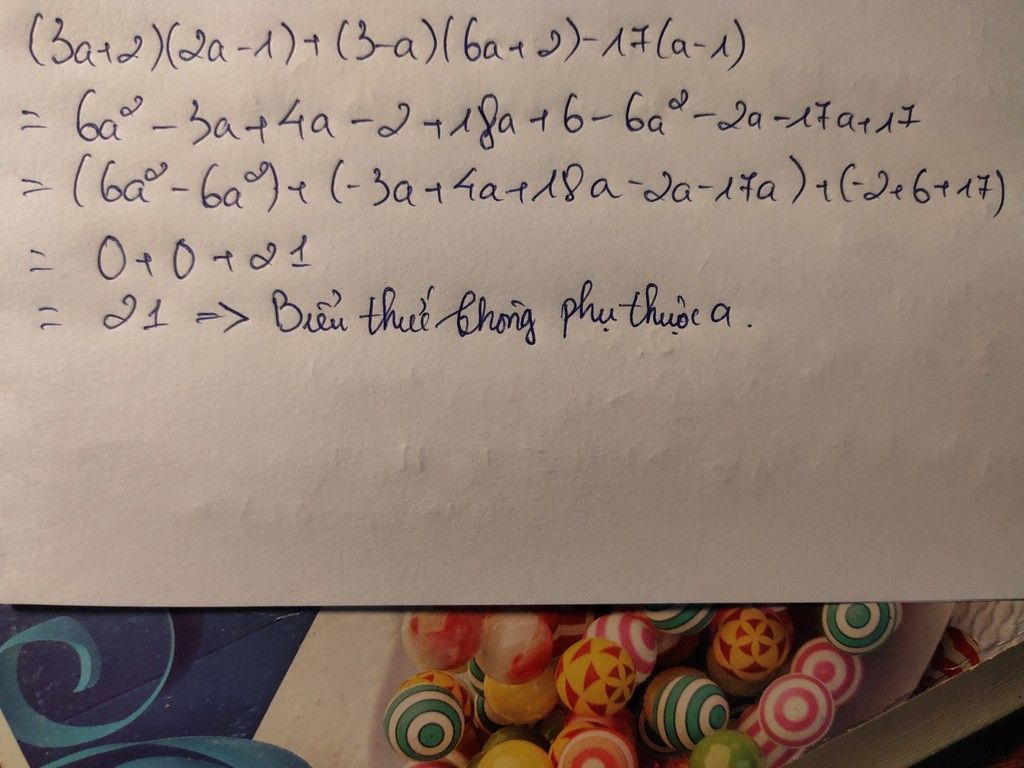 (3a+2)(2a-1)+(3-a)(6a+2)-17(a-1)
= 6a² - 3a + 4a - 2 + 18a + 6 - 6a² - 2a - 17a + 17
= (6a² - 6a²) + (-3a + 4a + 18a - 2a - 17a) + (-2 + 6 + 17)
= 0 + 0 + 21
= 21 => Biểu thức không phụ thuộc a.